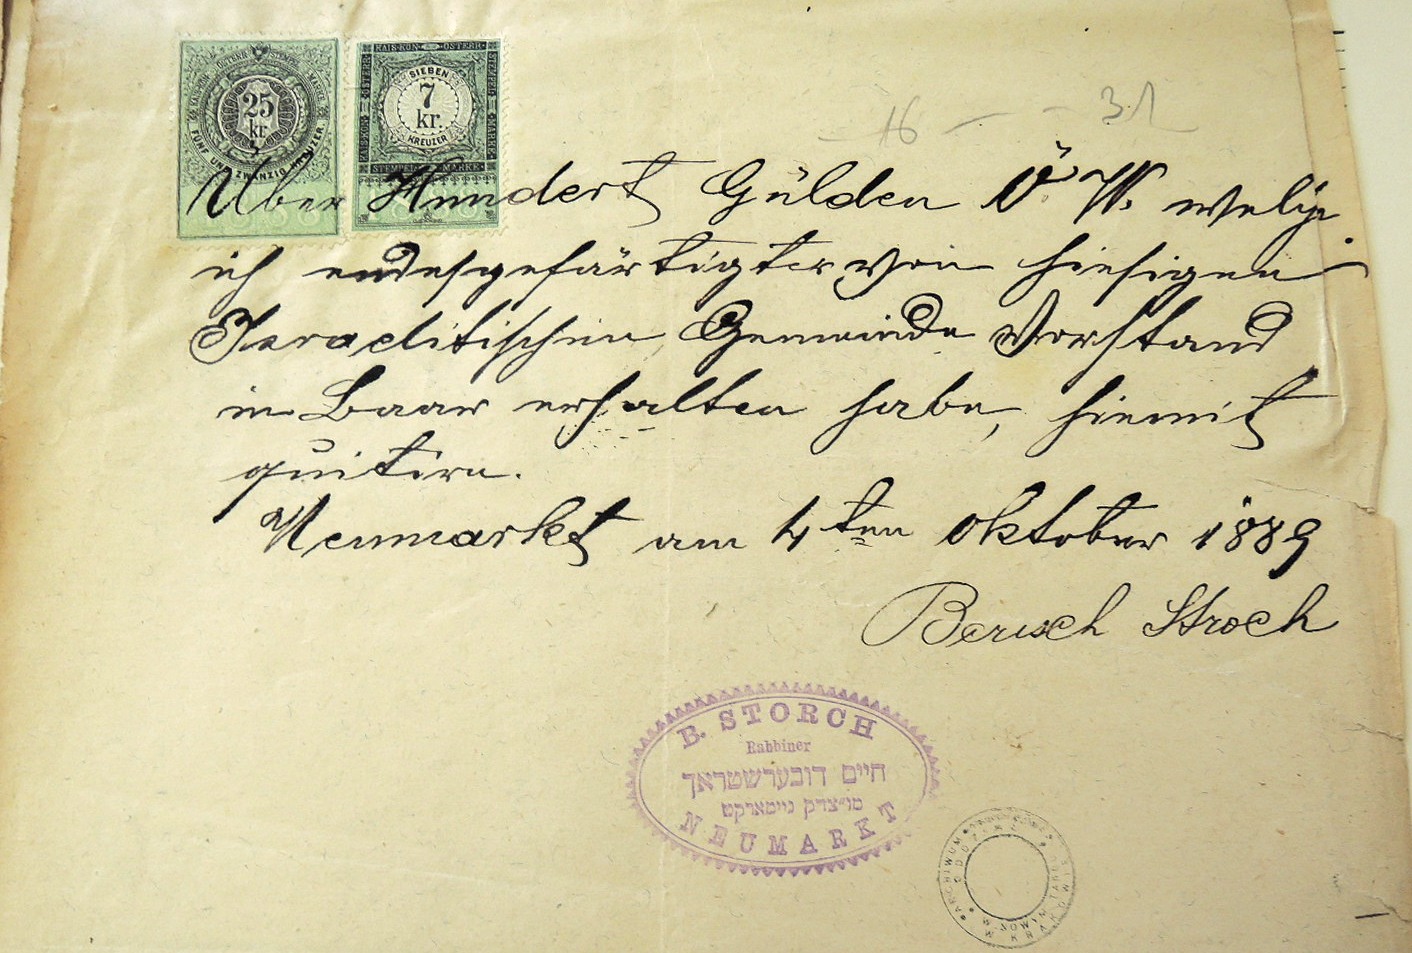 25
kr.
FÜNF UND ZWANZIG KREUZER
KAIS. KÖN. ÖSTERR.
SIEBEN
7
kr.
KREUZER
STEMPEL MARKE
16 — - 31
Über Hundert Gülden Ö. W. welche
ich endesgefärtigter von hiesigen
Israelitischen Gemeinde Vorstand
in Baar erhalten habe, hiemit
quitire.
Neumarkt am 4ten Oktober 1889
Berisch Stroch
B. STORCH
Rabbiner
חיים דובערשטראך
מו״צדק ניימארקט
NEUMARKT
ARCHIWUM
W KRAKOWIE
W NOWYM TARGU